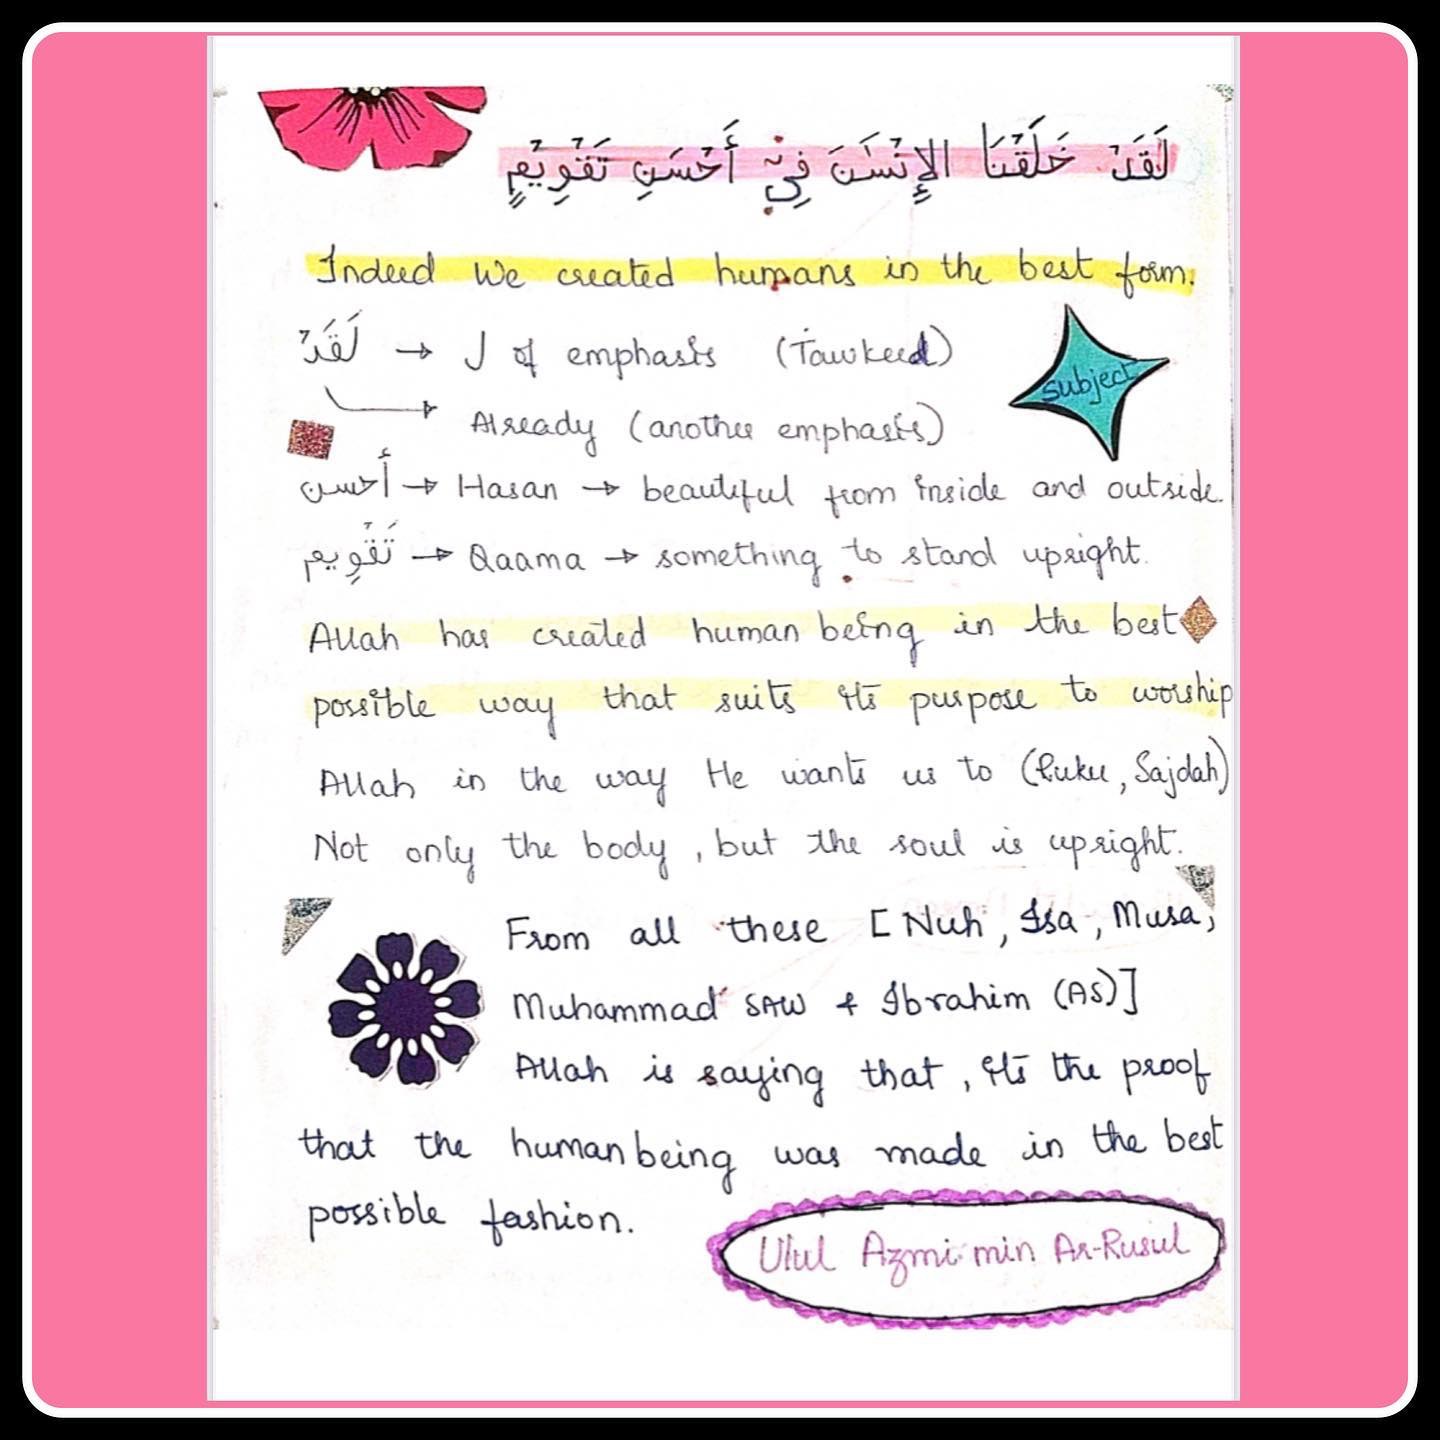 لَقَدۡ خَلَقۡنَا الإِنۡسَٰنَ فِيٓ أَحۡسَنِ تَقۡوِيۡمٍ
Indeed We created humans in the best form.
لَقَدۡ → ل of emphasis (Tawkeed)
Subject
→ Already (another emphasis)
أحسن → Hasan → beautiful from inside and outside.
تَقۡوِيم → Qaama → something to stand upright.
Allah has created human being in the best
possible way that suits its purpose to worship
Allah in the way He wants us to (Ruku, Sajdah)
Not only the body, but the soul is upright.
From all these [Nuh, Isa, Musa,
Muhammad SAW + Ibrahim (AS)]
Allah is saying that, its the proof
that the human being was made in the best
possible fashion.
Ulul Azmi min Ar-Rusul